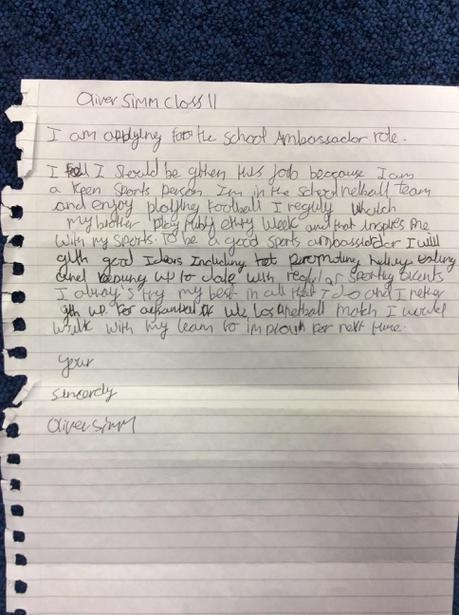 Oliver Simm Class 11
I am applying for the school Ambassador role.
I feel I should be given this job because I am
a keen sports person Im in the school netball team
and enjoy playing football I reguly whatch
my brother play ruby every week and that inspires me
with my sports. To be a good sports ambassador I will
give good Ideas Including promoting eating
and keeping up to date with sporty events
I alway's try my best in all that I do and I never
give up. For if we los a netball match I would
with my team to improve for next time.
your
sincerely
Oliver Simm